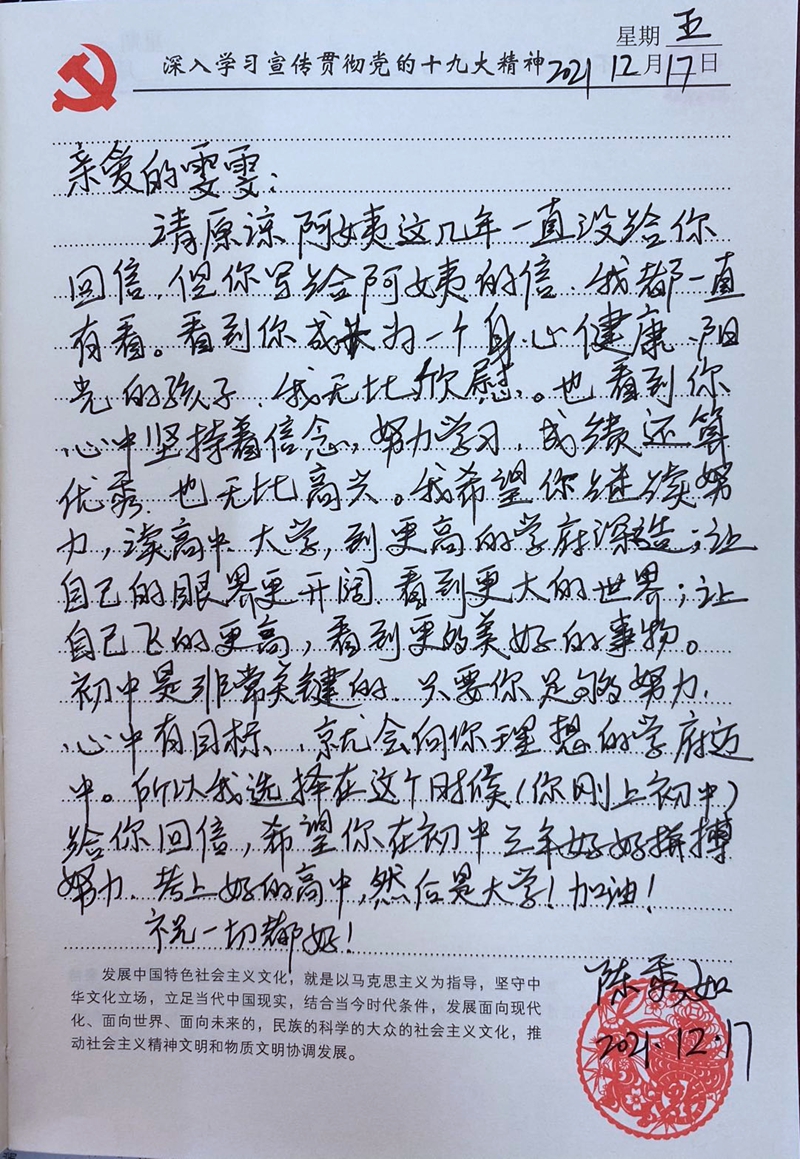 星期 五
深入学习宣传贯彻党的十九大精神 2021 12月17日
亲爱的雯雯:
请原谅阿姨这几年一直没给你
回信,但你写给阿姨的信,我都一直
有看。看到你成长为一个身心健康、阳
光的孩子,我无比欣慰。也看到你
心中坚持着信念,努力学习,成绩还算
优秀,也无比高兴。我希望你继续努
力,读高中、大学,到更高的学府深造;让
自己的眼界更开阔,看到更大的世界;让
自己飞的更高,看到更的美好的事物。
初中是非常关键的,只要你足够努力,
心中有目标,就会向你理想的学府迈
中。所以我选择在这个时候(你刚上初中)
给你回信,希望你在初中三年好好拼搏
努力,考上好的高中,然后是大学!加油!
祝一切都好!
陈秀如
2021.12.17
发展中国特色社会主义文化,就是以马克思主义为指导,坚守中
华文化立场,立足当代中国现实,结合当今时代条件,发展面向现代
化、面向世界、面向未来的,民族的科学的大众的社会主义文化,推
动社会主义精神文明和物质文明协调发展。